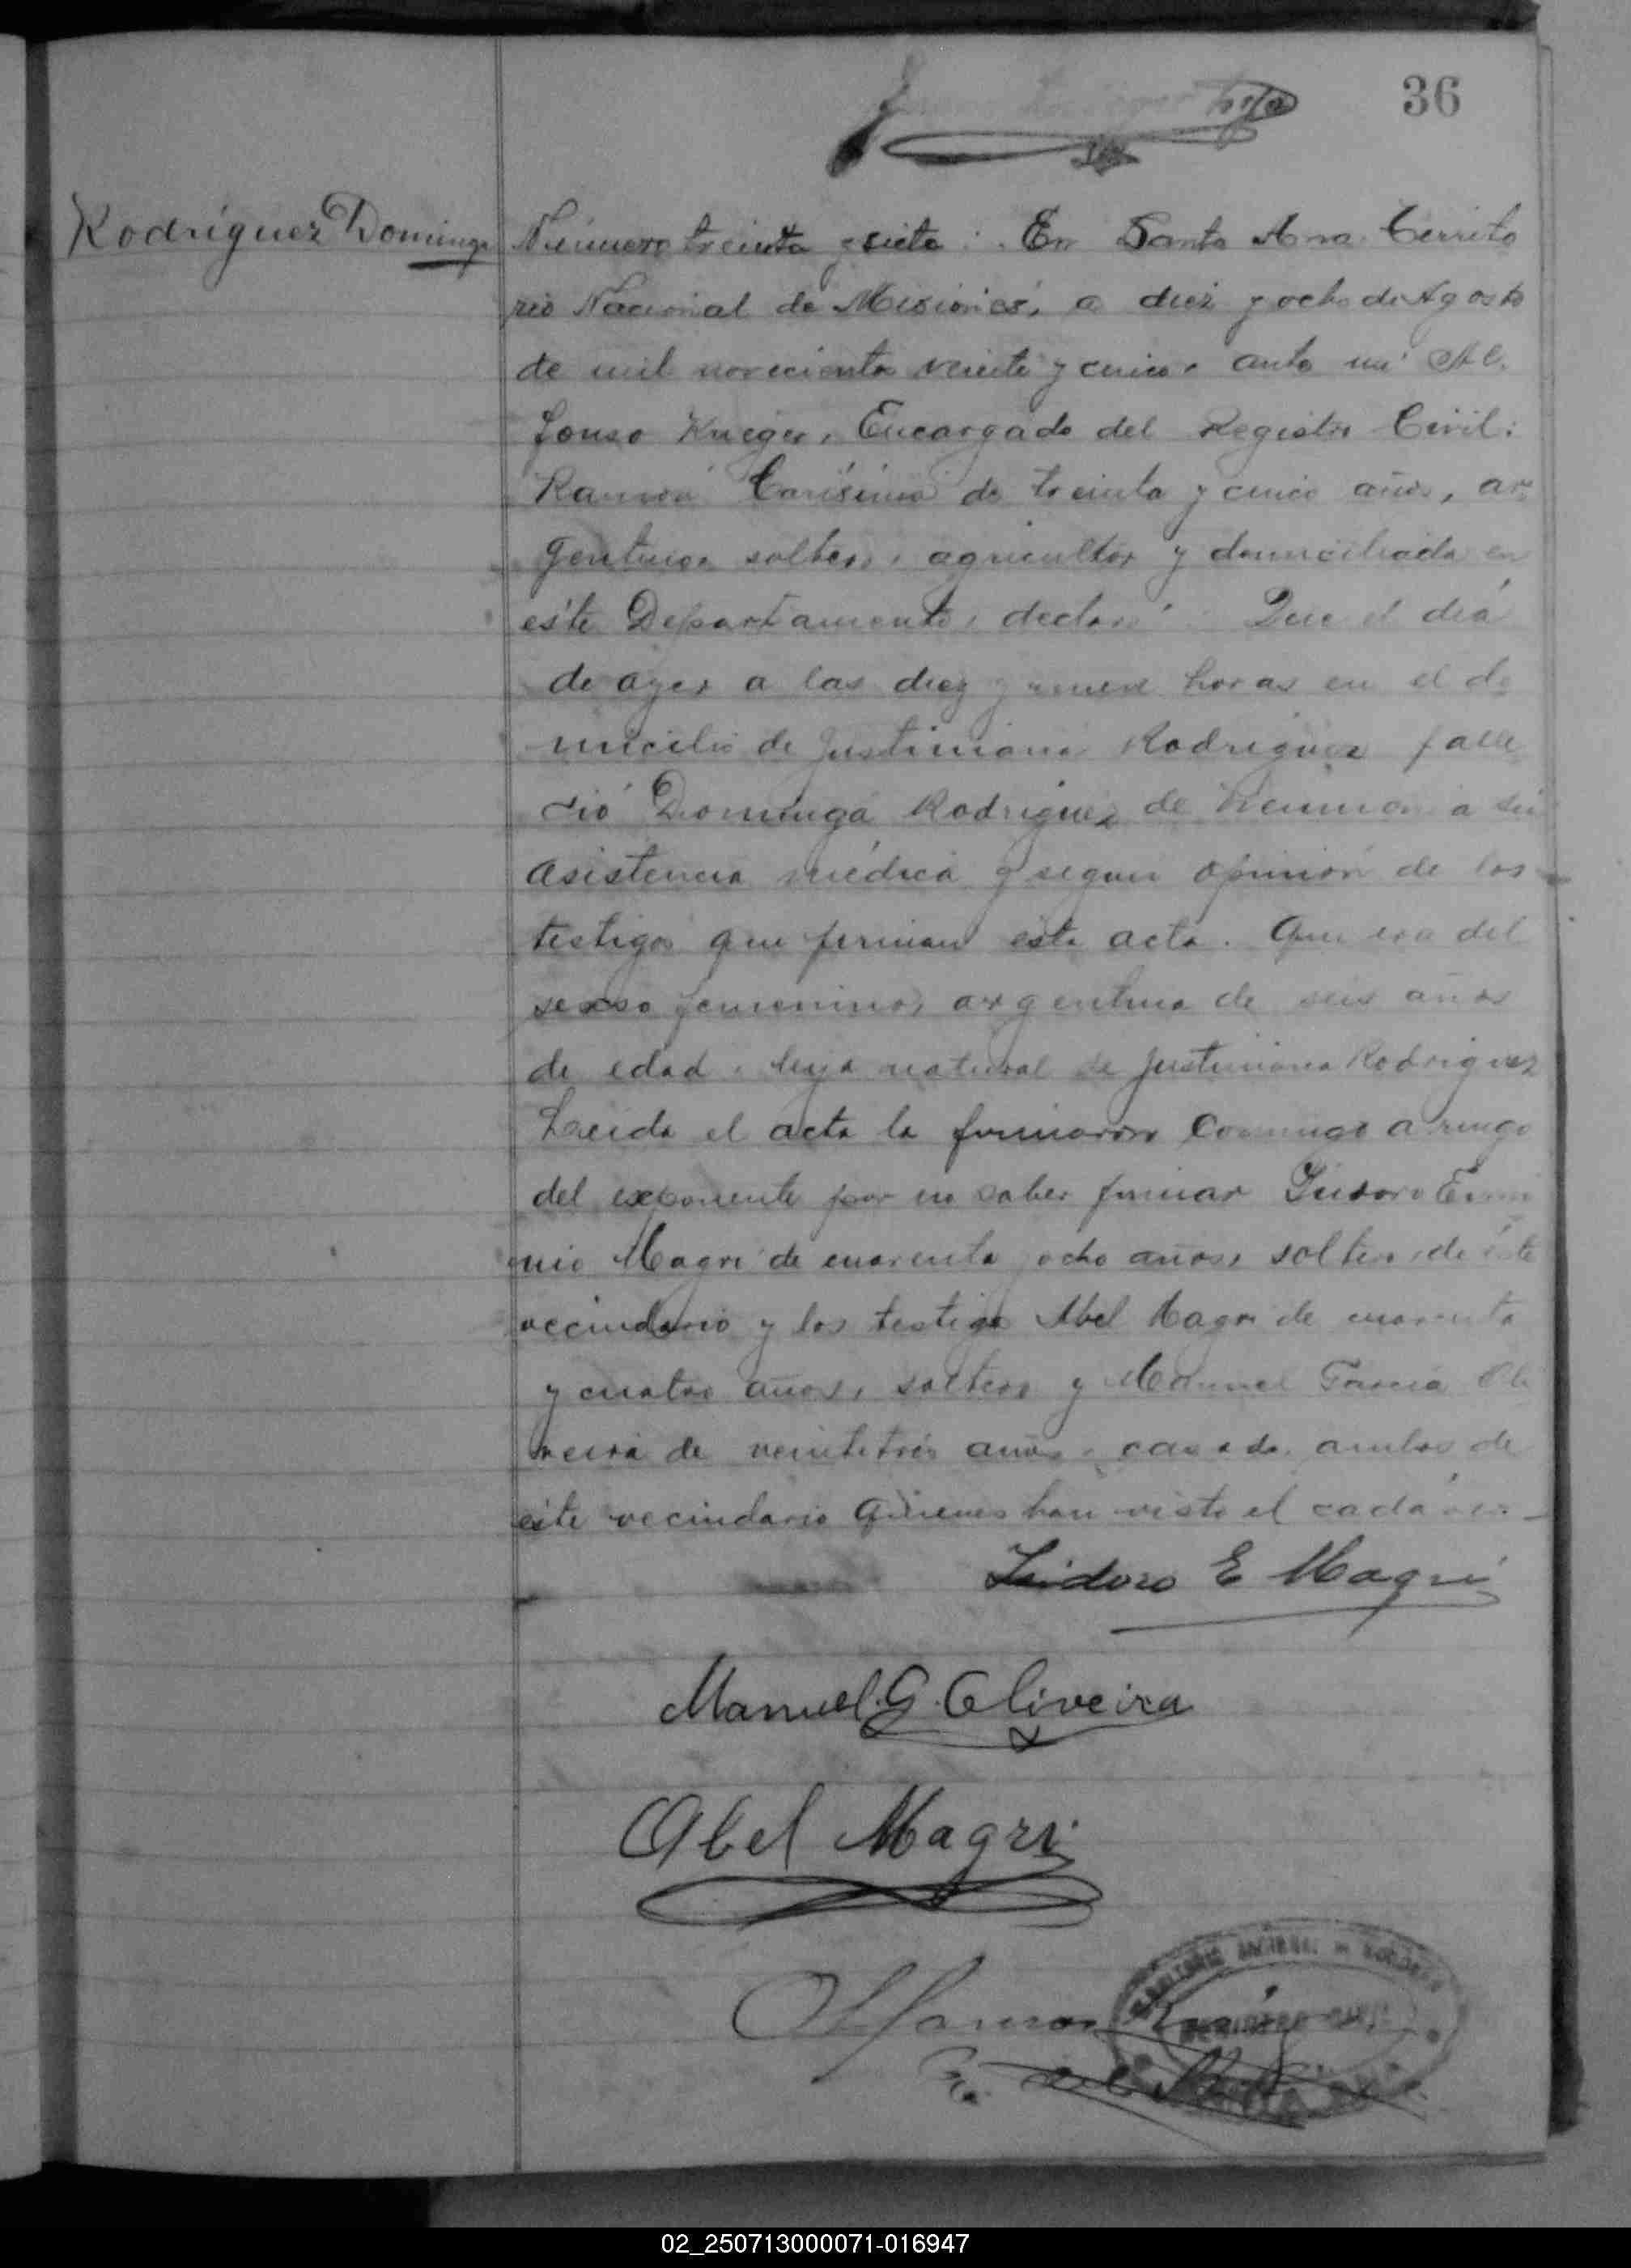 36
Rodríguez Dominga
Número treinta y siete: En Santa Ana Territo
rio Nacional de Misiones, a diez y ocho de Agosto
de mil novecientos veinte y cinco, ante mi Al
fonso Krieger, Encargado del Registro Civil:
Ramón de treinta y cinco años, ar
gentino, soltero, agricultor y domiciliado en
éste Departamento, declaró: Que el día
de ayer a las diez y nueve horas en el do
micilio de Justiniana Rodriguez falle
ció Dominga Rodriguez de sin
asistencia médica y segun opinión de los
testigos que firman esta acta. Que era del
sexso femenino, argentina de seis años
de edad, hija natural de Justiniana Rodriguez
Leída el acta la firmaron conmigo a ruego
del exponente por no saber firmar Isidoro
Magri de cuarenta y ocho años, soltero, de éste
vecindario y los testigos Abel Magri de cuarenta
y cuatro años, soltero y Manuel García Oli
veira de veintitrés años, casado, ambos de
éste vecindario quienes han visto el cadáver.
Isidoro E Magri
Manuel G. Oliveira
Abel Magri
Alfonso
REGISTRO CIVIL
02_250713000071-016947